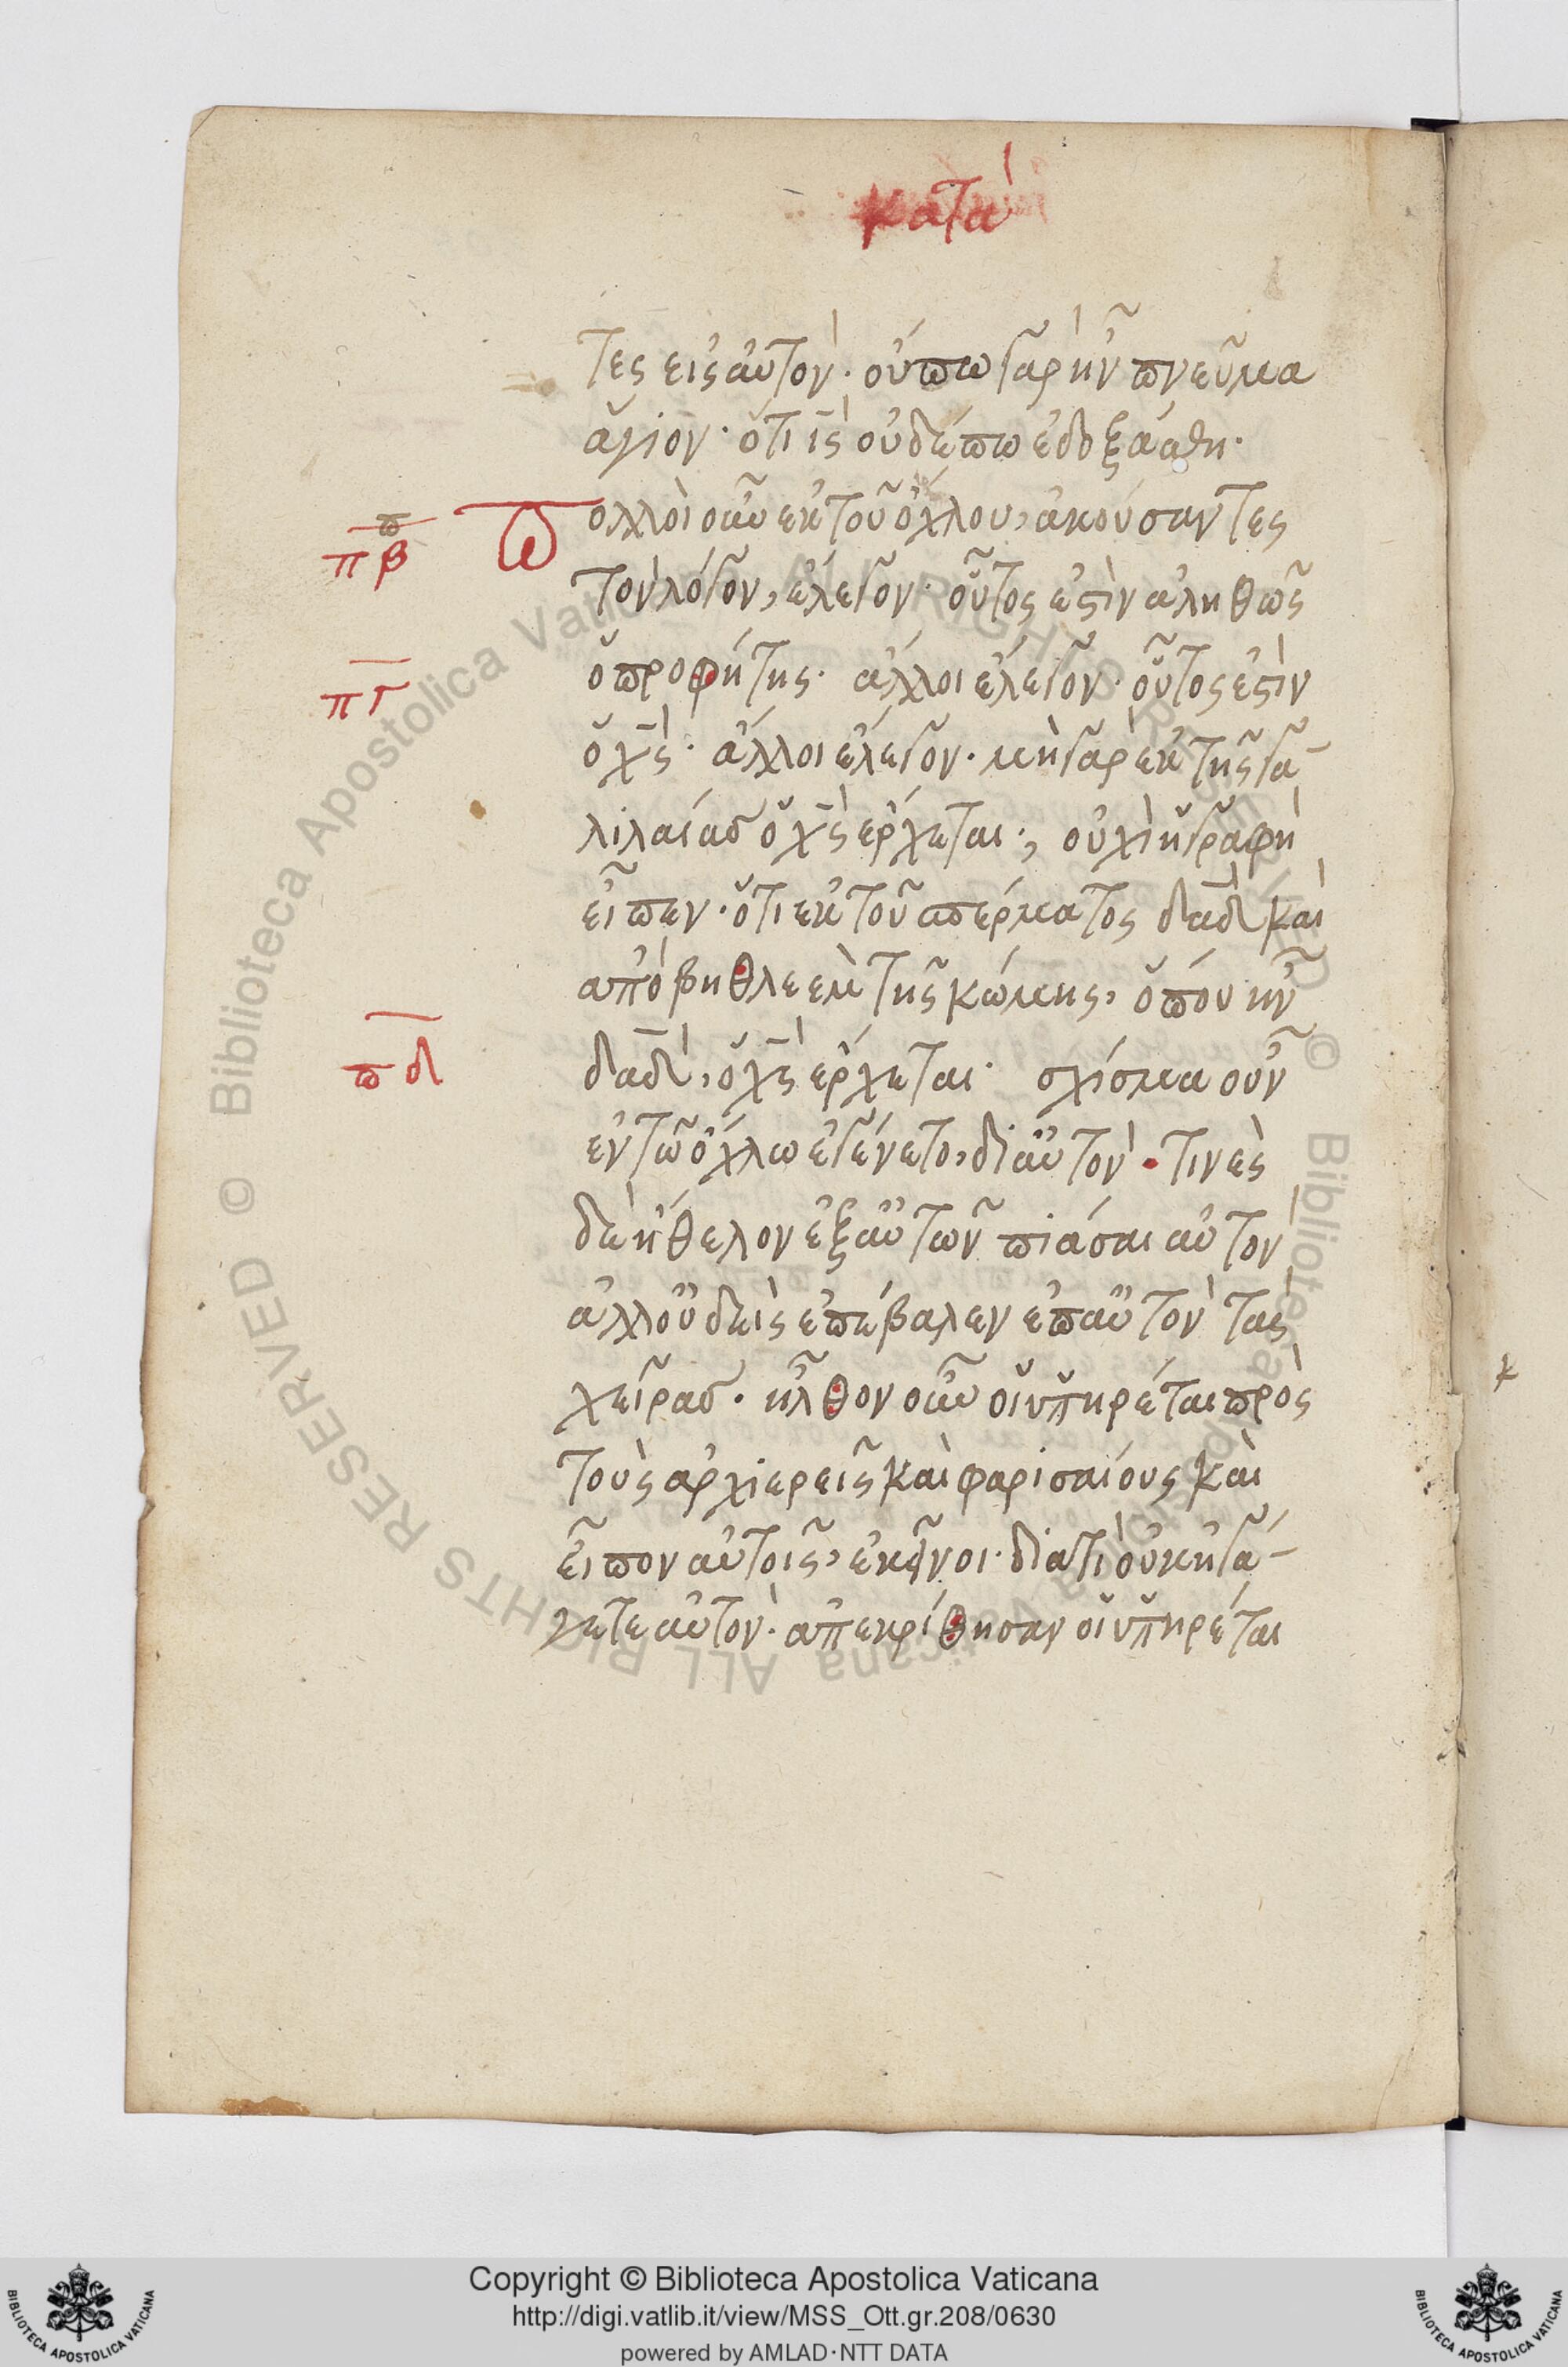 κατὰ
τες εις αὐτὸν· οὔπω γὰρ ἦν πνεῦμα
ἅγιον· ὅτι ις̅ οὐδέπω ἐδοξάσθη·
πβ πολλοὶ οὖν ἐκ τοῦ ὄχλου, ἀκούσαντες
τὸν λόγον, ἔλεγον· οὗτος ἐστὶν ἀληθῶς
πγ ὁ προφήτης· ἄλλοι ἔλεγον· οὗτος ἐστὶν
ὁ χς̅· ἄλλοι ἔλεγον· μὴ γὰρ ἐκ τῆς γα-
λιλαίας ὁ χς̅ ἔρχεται·; οὐχὶ ἡ γραφὴ
εἶπεν· ὅτι ἐκ τοῦ σπέρματος δαδ̅ καὶ
ἀπὸ βηθλεὲμ τῆς κώμης, ὅπου ἦν
πδ δαδ̅, ὁ χς̅ ἔρχεται· σχίσμα οὖν
ἐν τῶ ὄχλω ἐγένετο, δι αὐτὸν· τινὲς
δὲ ἤθελον ἐξ αὐτῶν πιάσαι αὐτὸν
ἀλλ οὐδεὶς ἐπέβαλεν ἐπ αὐτὸν τὰς
χεῖρας· ἦλθον οὖν οἱ ὑπηρέται πρὸς
τοὺς ἀρχιερεῖς καὶ φαρισαίους καὶ
εἶπον αὐτοῖς, ἐκεῖνοι· διατὶ οὐκ ἠγά-
γετε αὐτὸν· ἀπεκρίθησαν οἱ ὑπηρέται
Copyright © Biblioteca Apostolica Vaticana
http://digi.vatlib.it/view/MSS_Ott.gr.208/0630
powered by AMLAD·NTT DATA
© Biblioteca Apostolica Vaticana ALL RIGHTS RESERVED
BIBLIOTECA APOSTOLICA VATICANA
BIBLIOTECA APOSTOLICA VATICANA